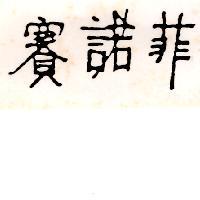 賽諾菲